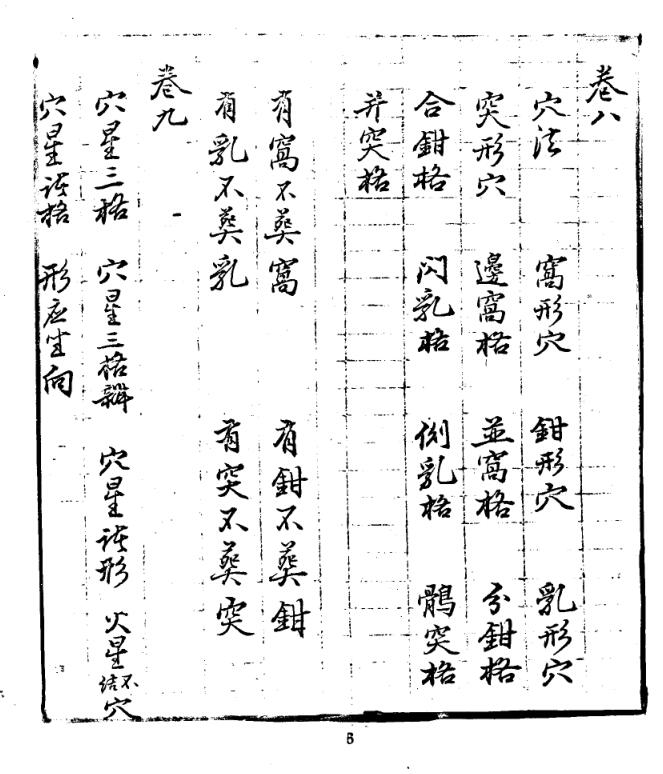 卷八
穴法 窩形穴 鉗形穴 乳形穴
突形穴 邊窩格 並窩格 分鉗格
合鉗格 閃乳格 側乳格 鶻突格
并突格
有窩不葬窩 有鉗不葬鉗
有乳不葬乳 有突不葬突
卷九
穴星三格 穴星三格辯 穴星诸形 火星不结穴
穴星诸格 形应坐向
6